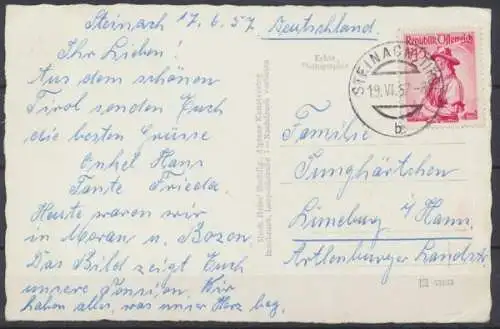 Steinach 17.6.57.
Deutschland.
Ihr Lieben!
Aus dem schönen
Tirol senden Euch
die besten Grüsse
Onkel Hans
Tante Frieda.
Heute waren wir
in Meran u. Bozen.
Das Bild zeigt Euch
unsere Pension. Wir
haben alles, was unser Herz beg.
Echte
Photographie
Republik Österreich
STEINACH TIROL
19.VI.57
b
Familie
Junghärtchen
Lüneburg i/ Hann.
Artlenburger Landstr.